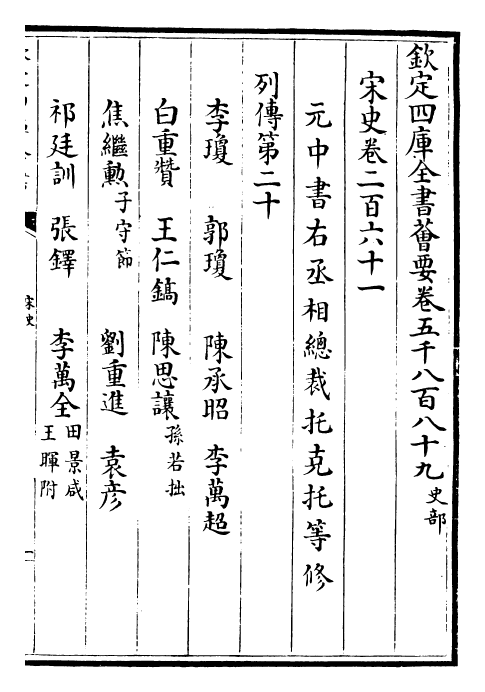 欽定四庫全書薈要卷五千八百八十九 史部
宋史卷二百六十一
元中書右丞相總裁托克托等修
列傳第二十
李瓊 郭瓊 陳承昭 李萬超
白重贊 王仁鎬 陳思讓 孫若拙
焦繼勲 子守節 劉重進 袁彦
祁廷訓 張鐸 李萬全 田景咸 王暉附
宋史